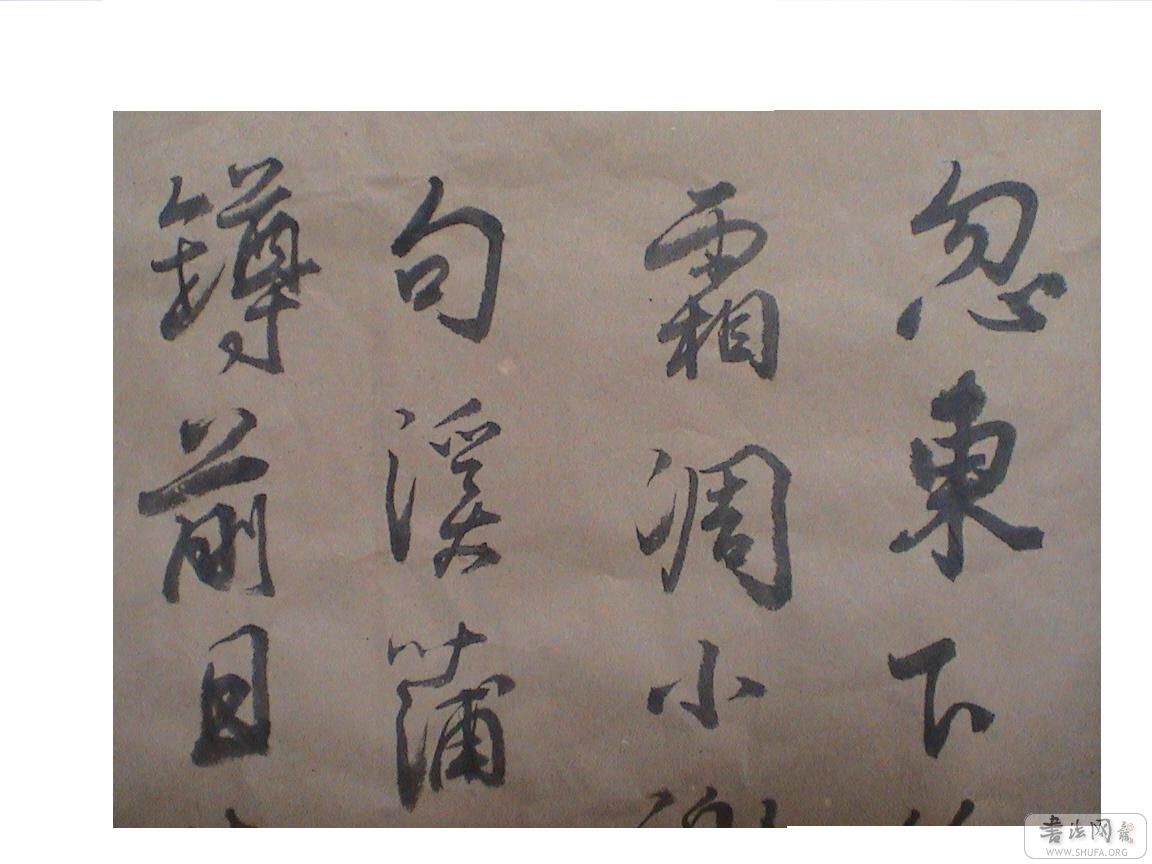 忽東下
霜凋小
句溪蒲
鐏前目
書法网
WWW.SHUFA.ORG